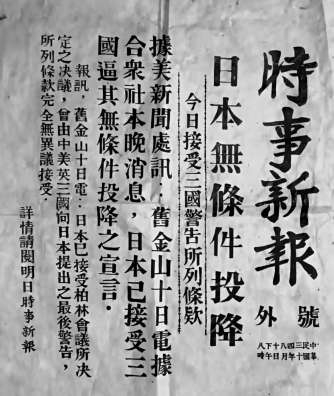 時事新報
號外
中華民國三十四年八月十日下午八時
日本無條件投降
今日接受三國警告所列條欵
據美新聞處訊：舊金山十日電據
合衆社本晚消息，日本已接受三
國逼其無條件投降之宣言．
報訊．舊金山十日電：日本已接受柏林會議所決
定之決議，曾由中美英三國向日本提出之最後警告，
所列條款完全無異議接受．
詳情請閱明日時事新報